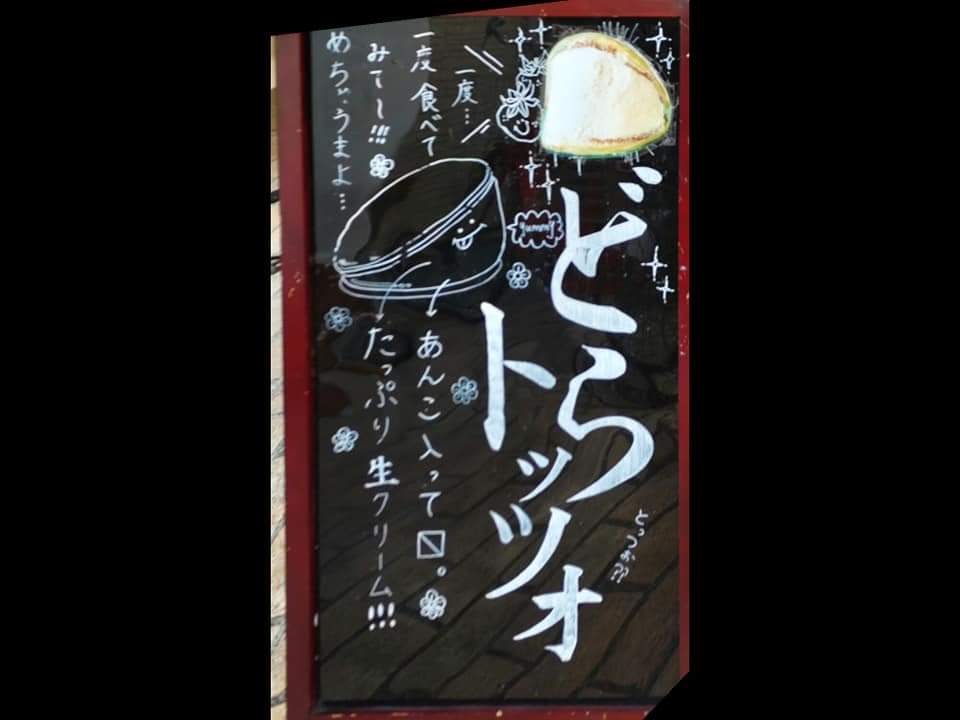 どら
トッツォ
とっつぉ!!?
yummy
一度…
一度食べて
みてー!!!
めちゃうまよ…
あんこ入って〼。
たっぷり生クリーム!!!